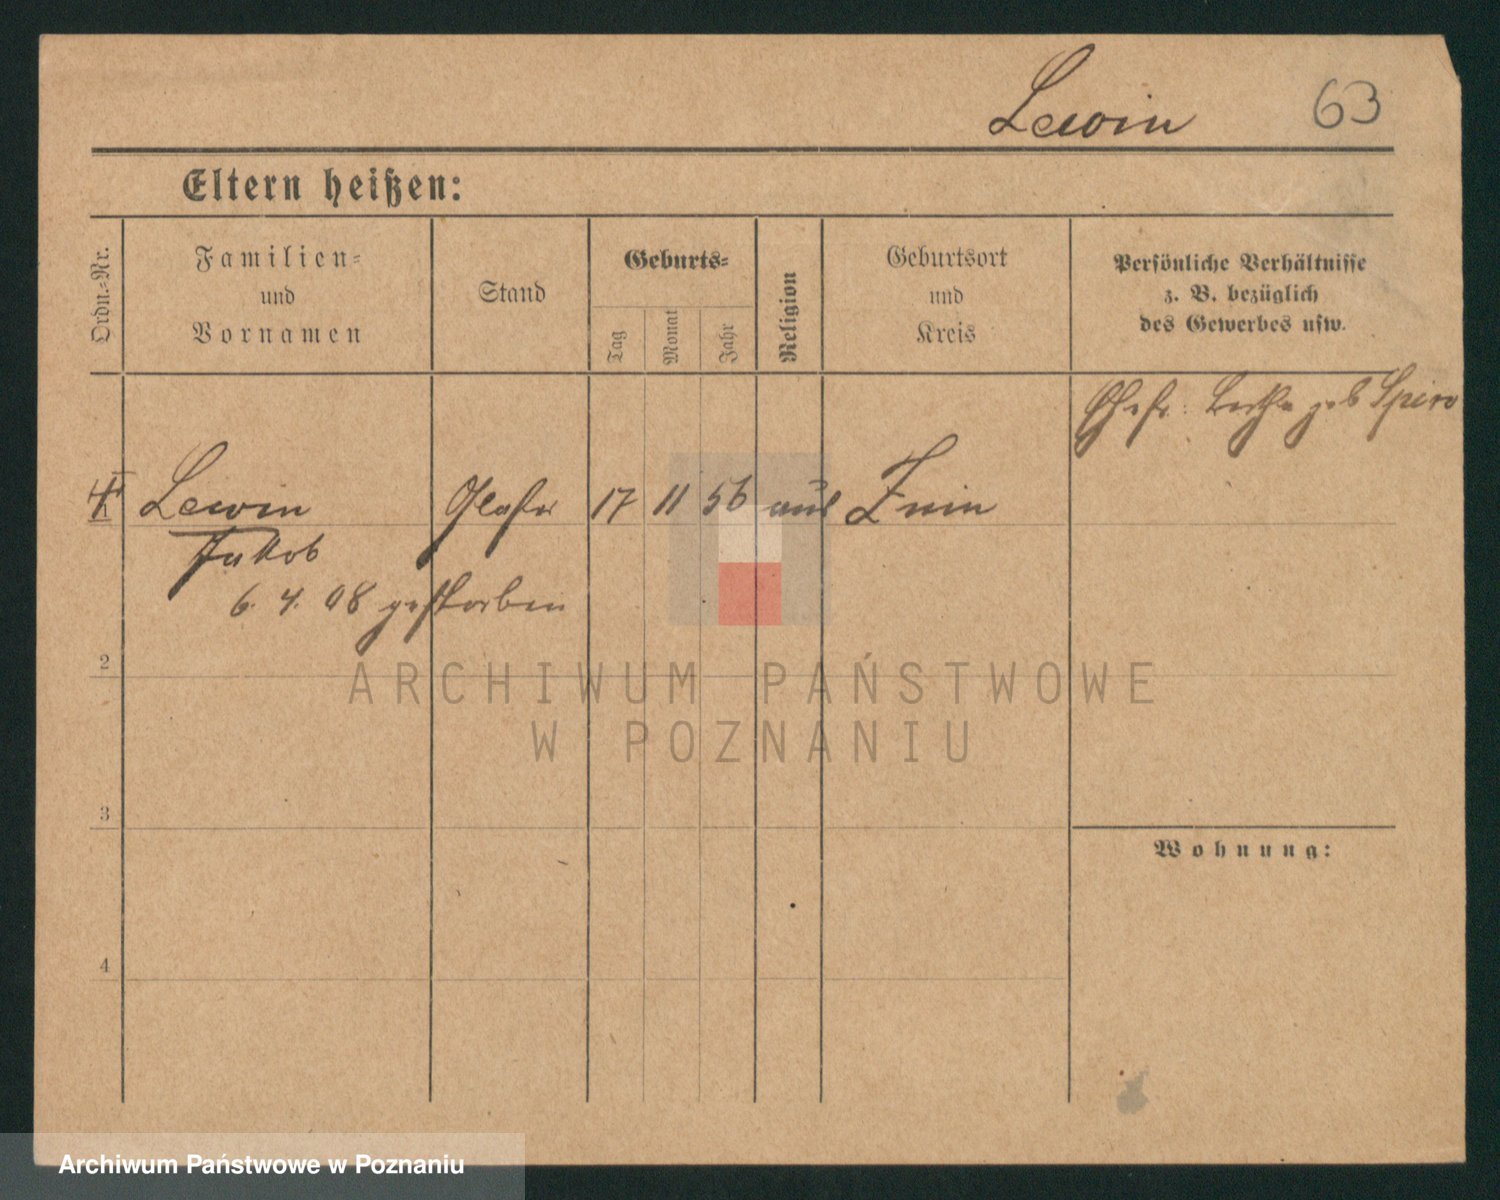 Lewin 63
Eltern heißen:
Ordn.-Nr.
Familien-
und
Vornamen
Stand
Geburts-
Tag
Monat
Jahr
Religion
Geburtsort
und
Kreis
Persönliche Verhältnisse
z. B. bezüglich
des Gewerbes usw.
Ehefr. Bertha geb Spiro
Lewin Glaser 17 11 56 Znin
Jakob
6. 4. 08 gestorben
2
3
4
Wohnung:
ARCHIWUM PAŃSTWOWE
W POZNANIU
Archiwum Państwowe w Poznaniu